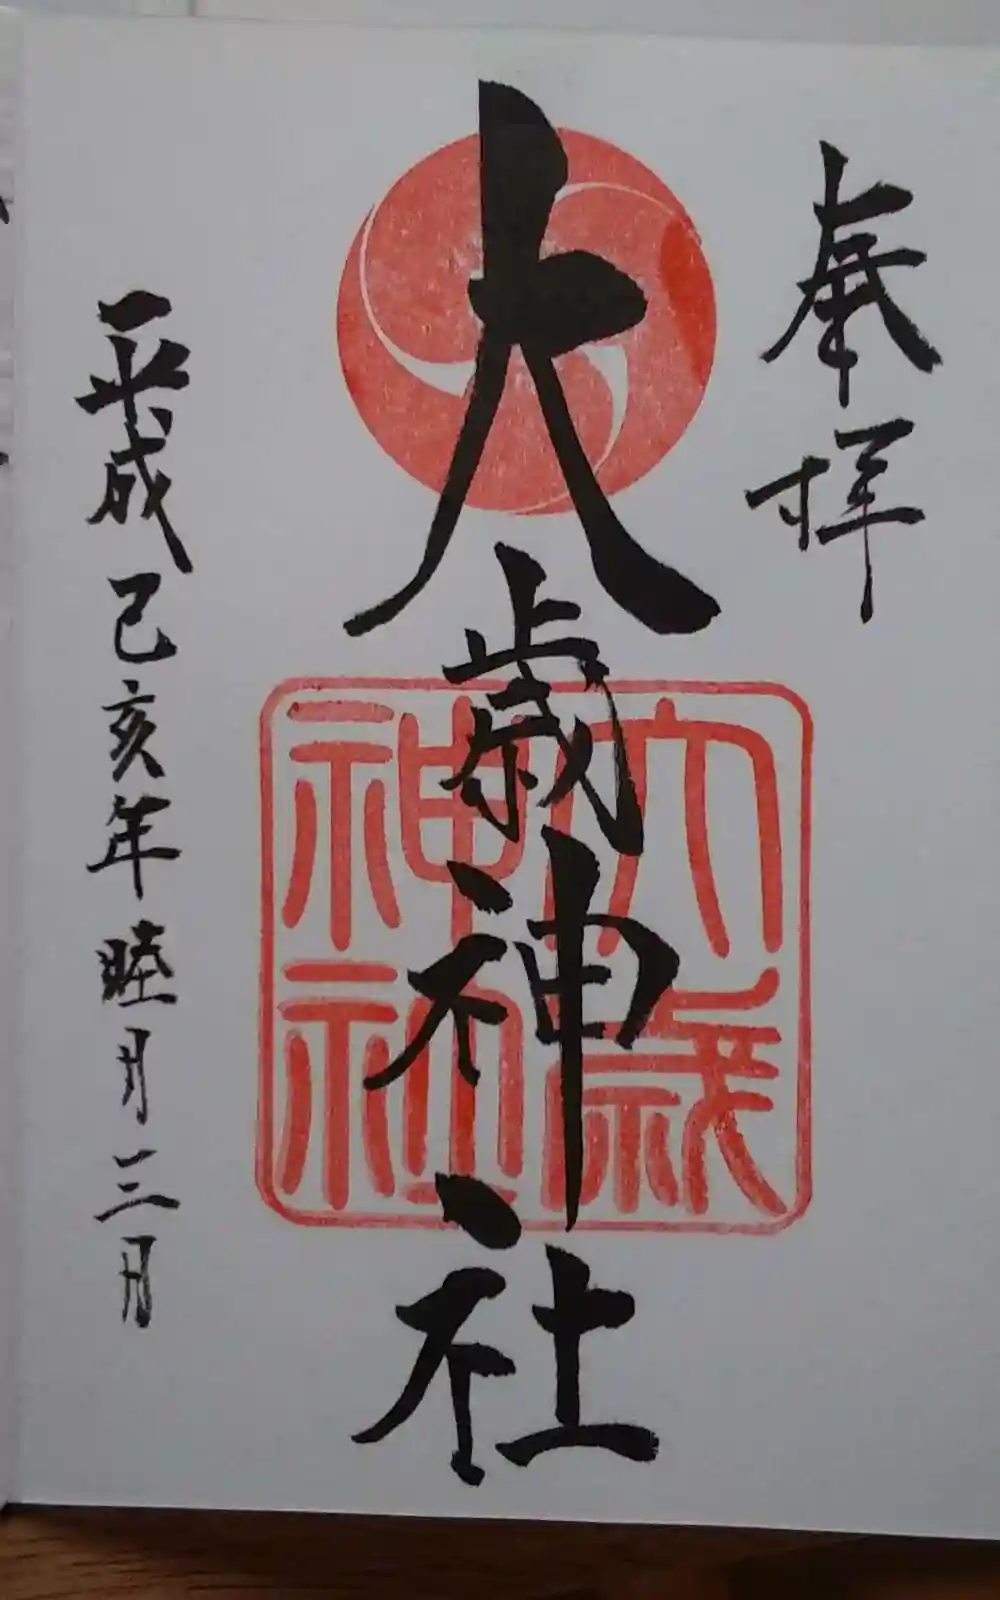 奉拝
大歳神社
大歳
神社
平成己亥年睦月三日